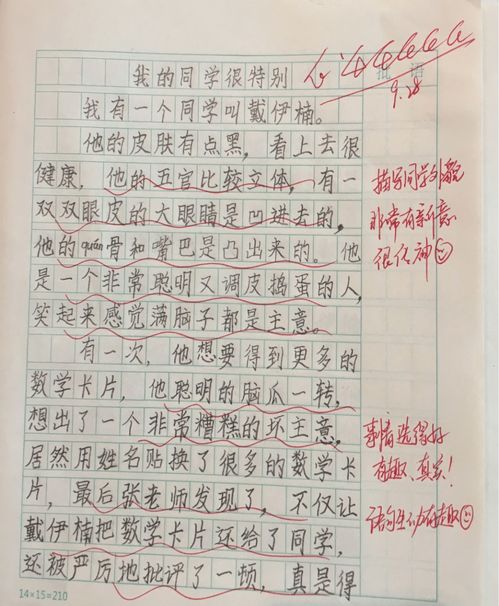 我的同学很特别
我有一个同学叫戴伊楠。
他的皮肤有点黑，看上去很
健康，他的五官比较立体，有一
双双眼皮的大眼睛是凹进去的，
他的quán骨和嘴巴是凸出来的。他
是一个非常聪明又调皮捣蛋的人，
笑起来感觉满脑子都是主意。
有一次，他想要得到更多的
数学卡片，他聪明的脑瓜一转，
想出了一个非常糟糕的坏主意，
居然用姓名贴换了很多的数学卡
片，最后张老师发现了，不仅让
戴伊楠把数学卡片还给了同学，
还被严厉地批评了一顿，真是得
14×15=210
批语
9.28
描写同学外貌
非常有新意
很传神
事情选得好
有趣、真实！
语句生动有趣